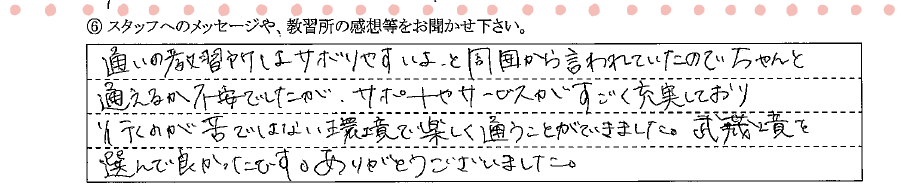 ⑥ スタッフへのメッセージや、教習所の感想等をお聞かせ下さい。
通いの教習所はサボりやすいよ、と周囲から言われていたのでちゃんと
通えるか不安でしたが、サポートやサービスがすごく充実しており
行くのが苦ではない環境で楽しく通うことができました。武蔵境を
選んで良かったです。ありがとうございました。